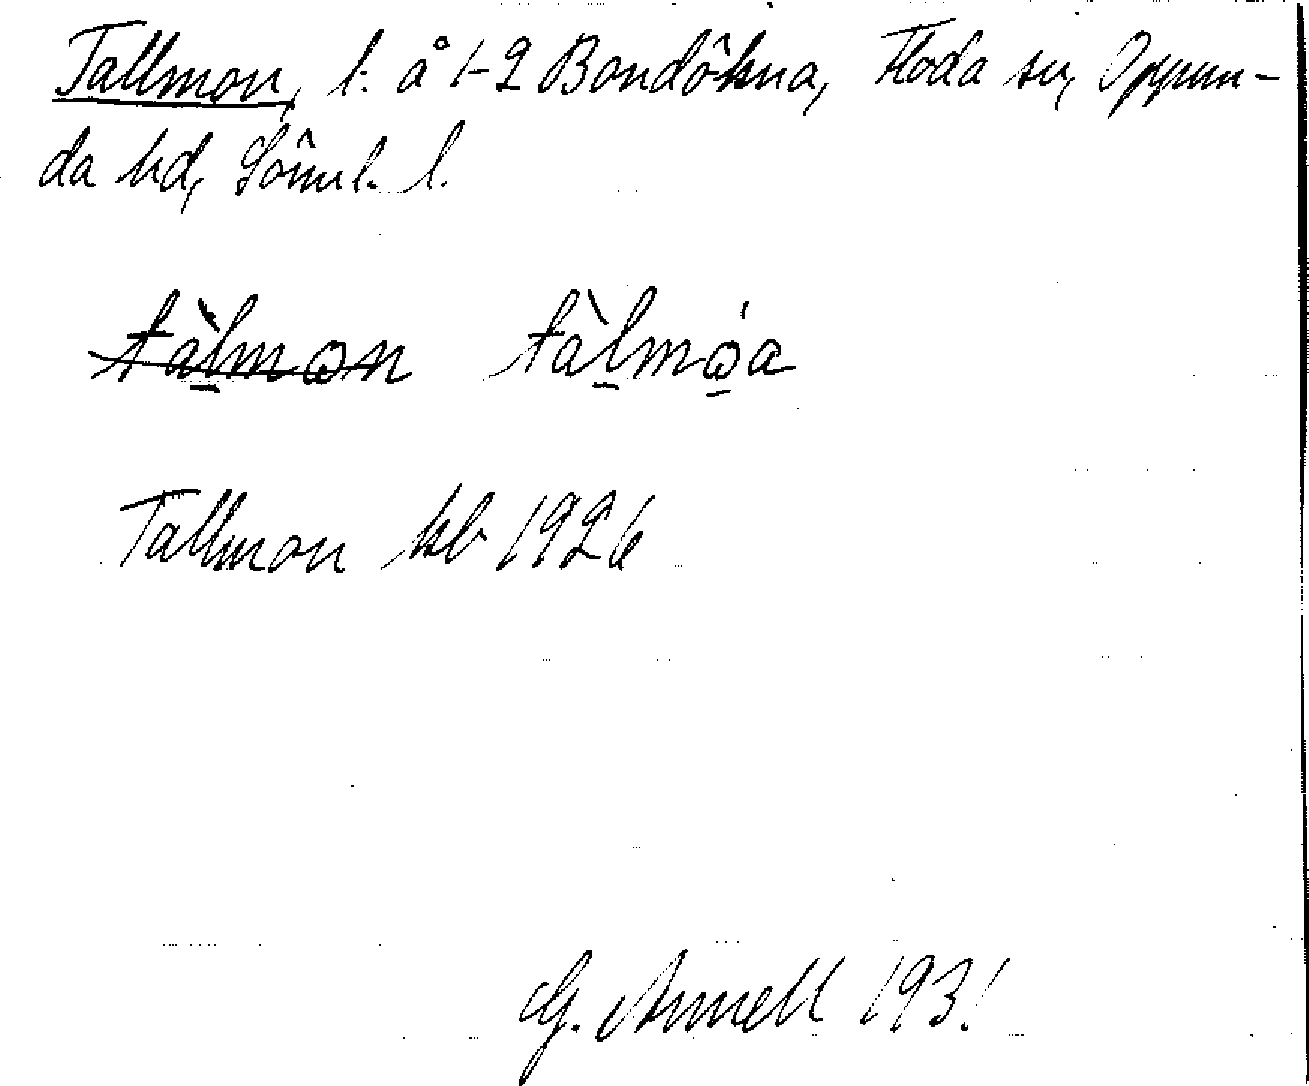 Tallmon, l. å 1-2 Bondökna, Floda sn, Oppun-
da hd, Söml. l.
tàlmon tàlmóa
Tallmon kb 1926
G. Armell 1931